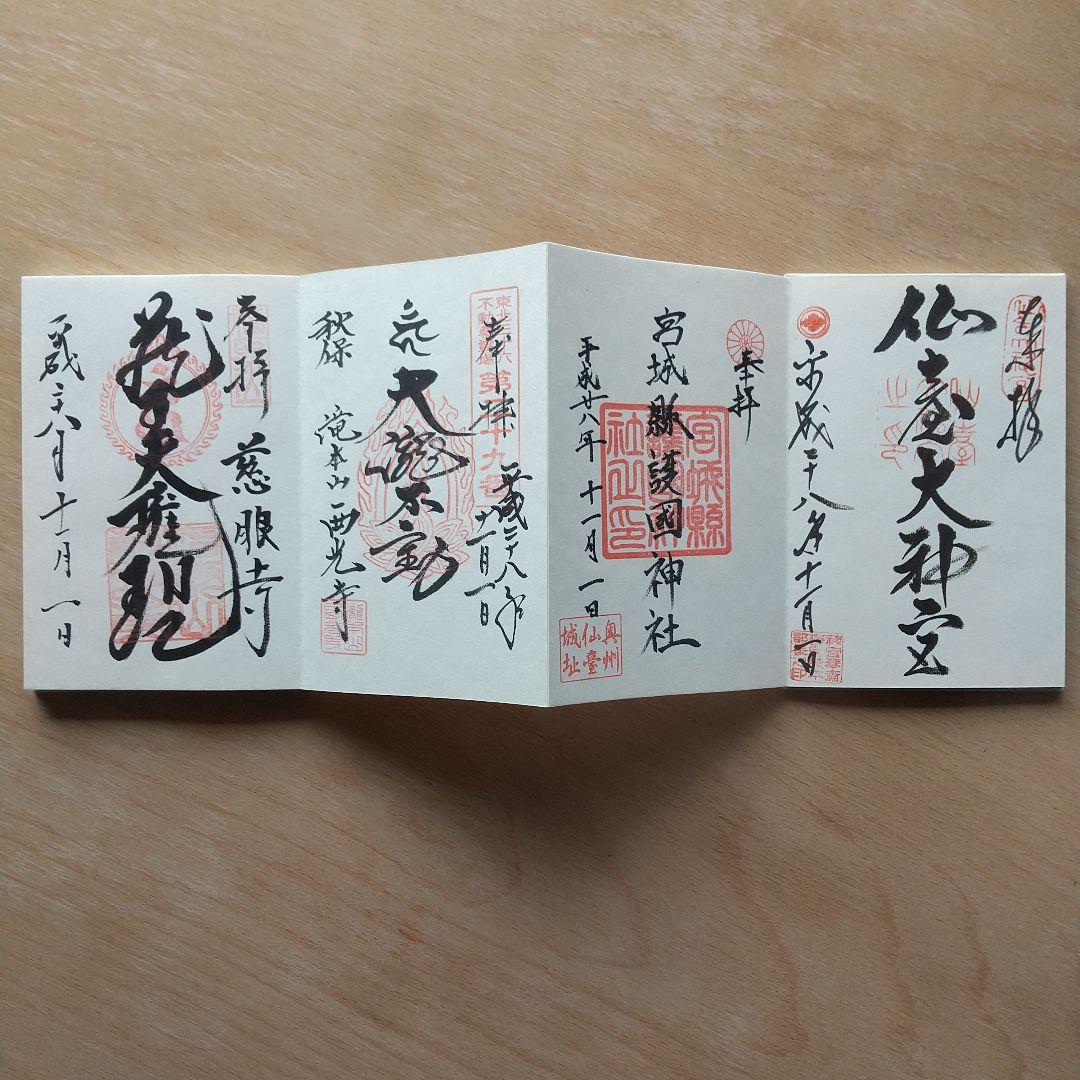 奉拝
仙臺大神宮
平成二十八年十一月一日
奉拝
宮城縣護國神社
宮城縣護國神社之印
平成廿八年十一月一日
奥州仙臺城址
奉拝
第二十九番
平成二十八年十一月一日
大瀧不動
秋保 滝本山西光寺
奉拝 慈眼寺
平成二十八年十一月一日